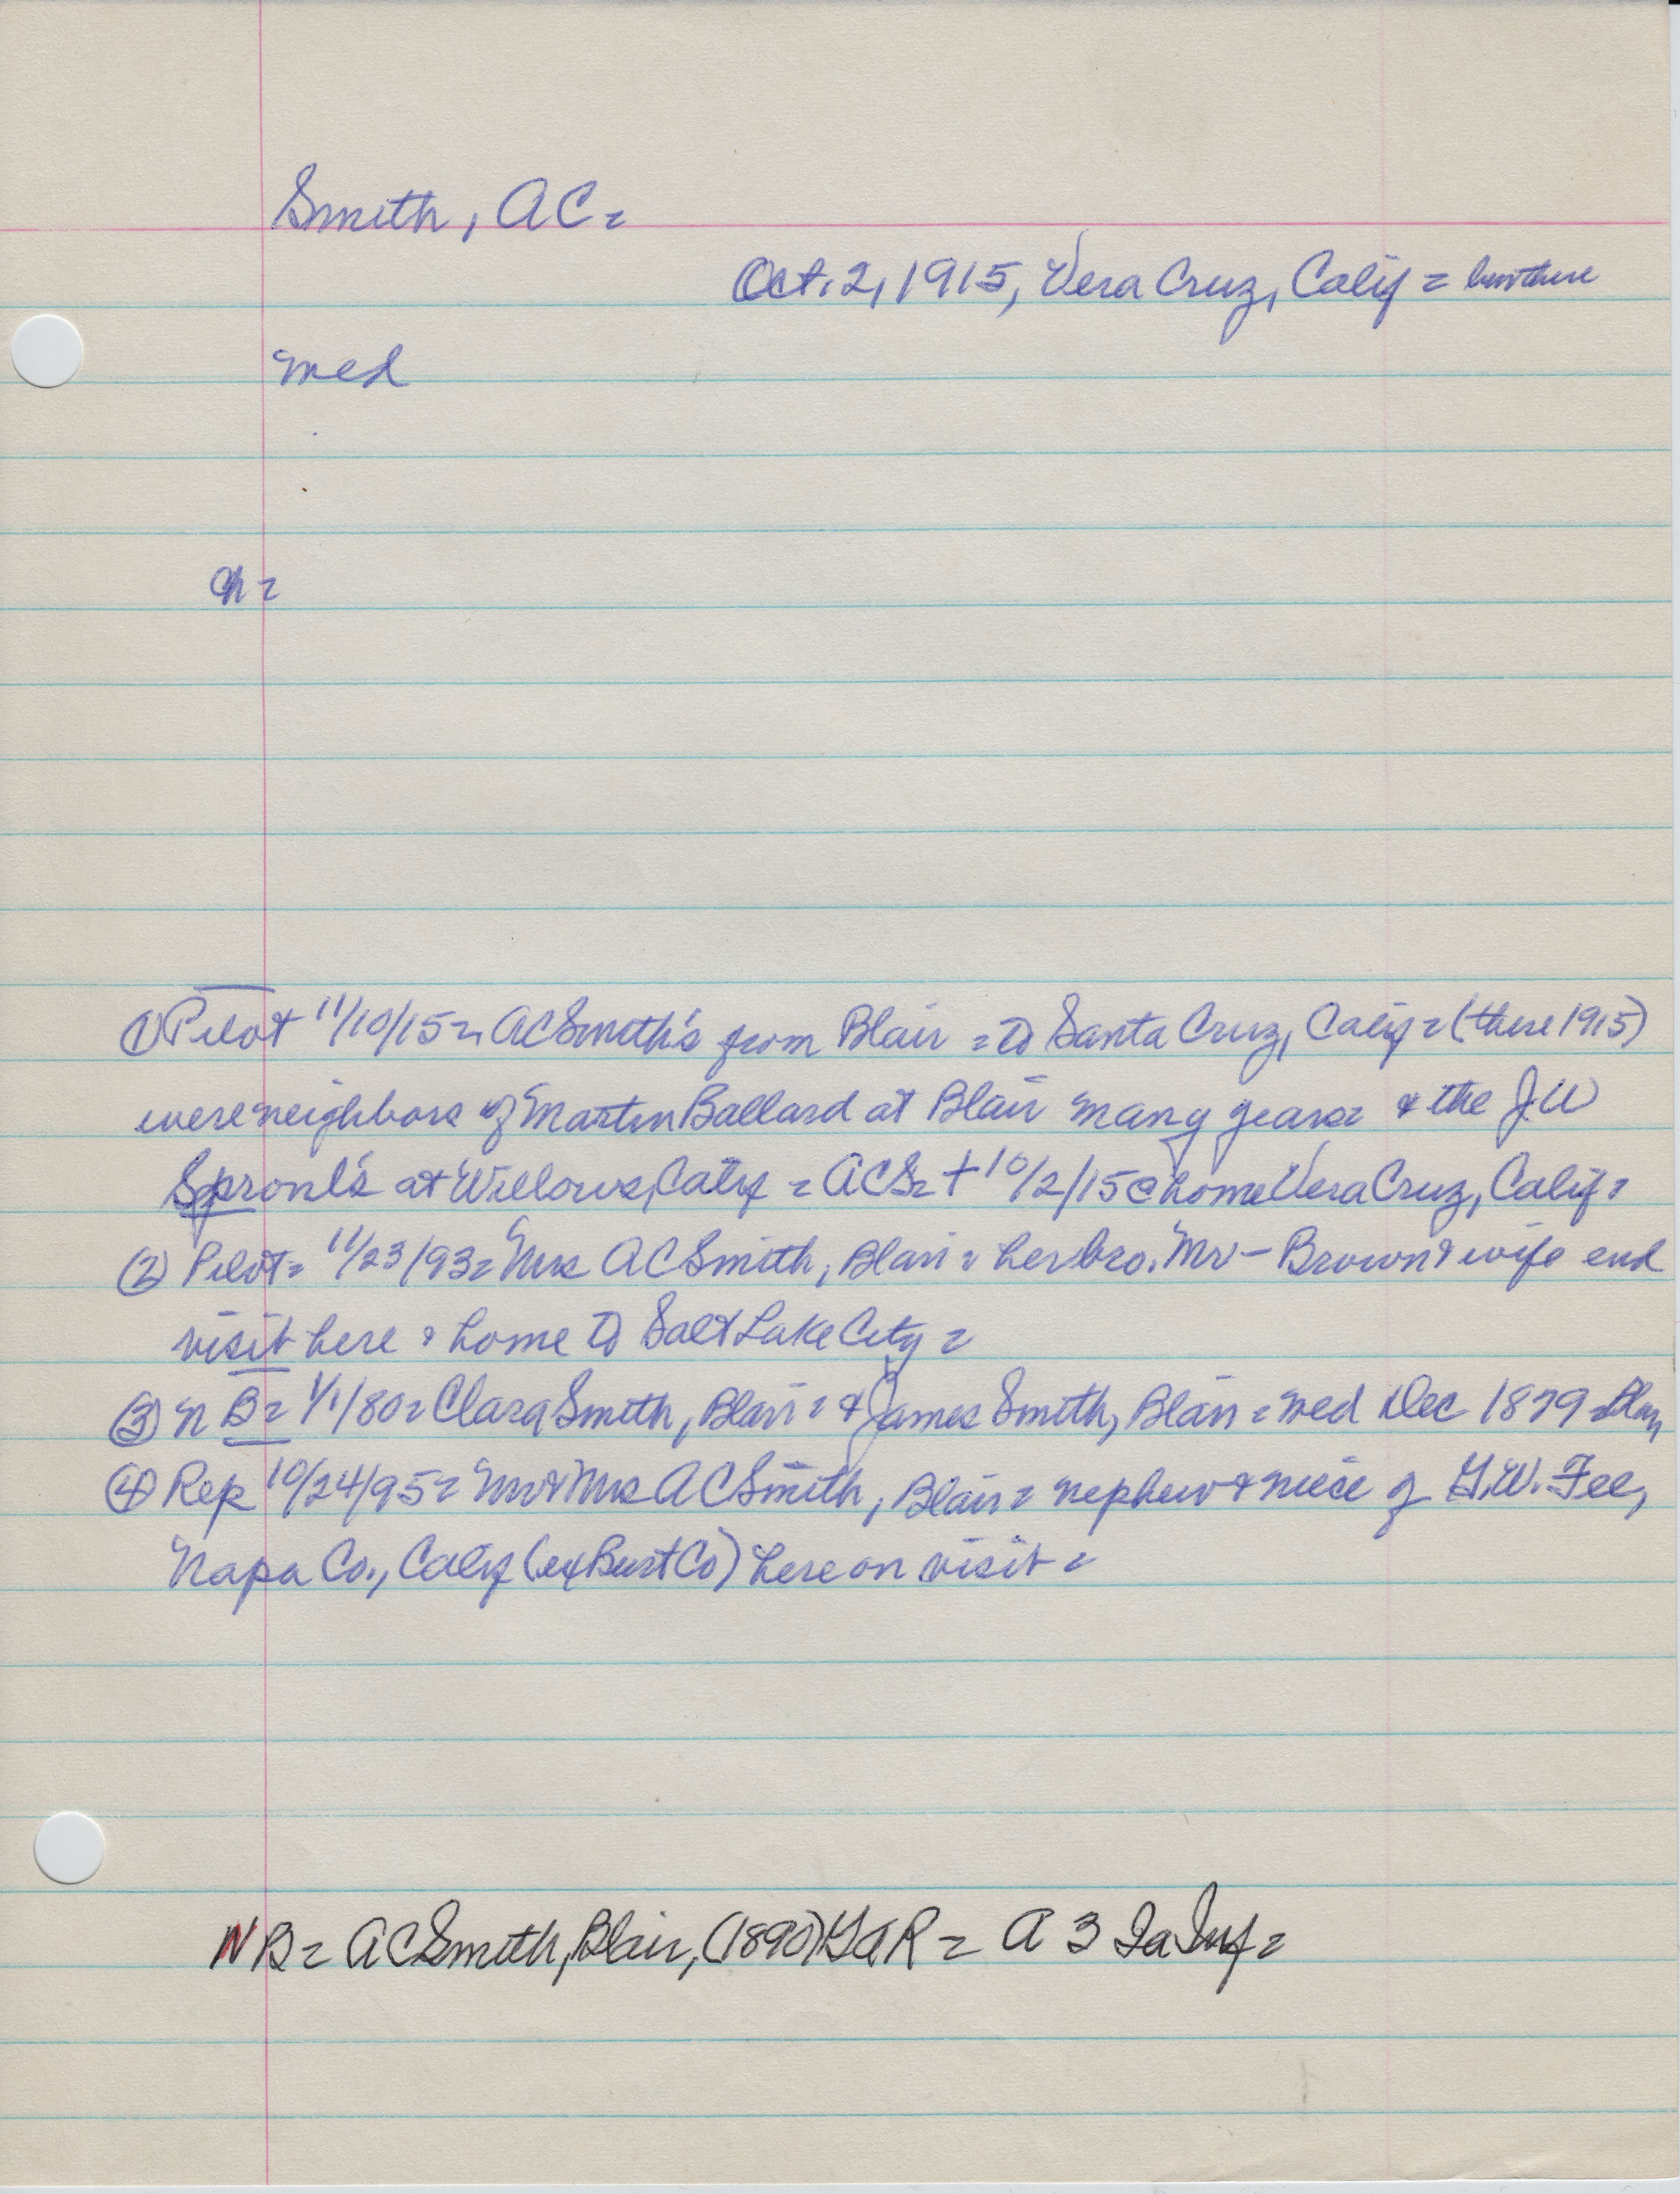 Smith, AC =
Oct. 2, 1915, Vera Cruz, Calif = bur there
med
ch =
① Pilot 11/10/15 = AC Smith's from Blair = to Santa Cruz, Calif = (there 1915)
were neighbors of Martin Ballard at Blair many years = & the J.W
Sproul's at Willows, Calif = ACS = + 10/2/15 @ home Vera Cruz, Calif =
② Pilot = 11/23/93 = Mrs AC Smith, Blair = her bro. Mr - Brown & wife end
visit here & home to Salt Lake City =
③ N B = 1/1/80 = Clara Smith, Blair = & James Smith, Blair = med Dec 1879 = Blair
④ Rep 10/24/95 = Mr & Mrs AC Smith, Blair = nephew & niece of G.W. Fee,
Napa Co., Calif (ex Burt Co) here on visit =
NB = AC Smith, Blair, (1890) GAR = A 3 Ia Inf =